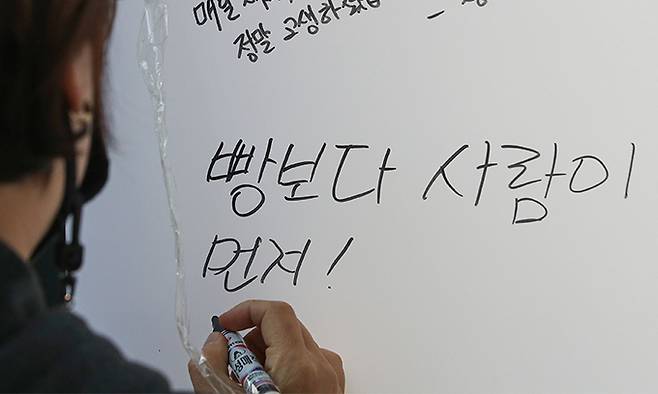 매일
정말 고생하셨습
빵보다 사람이
먼저!